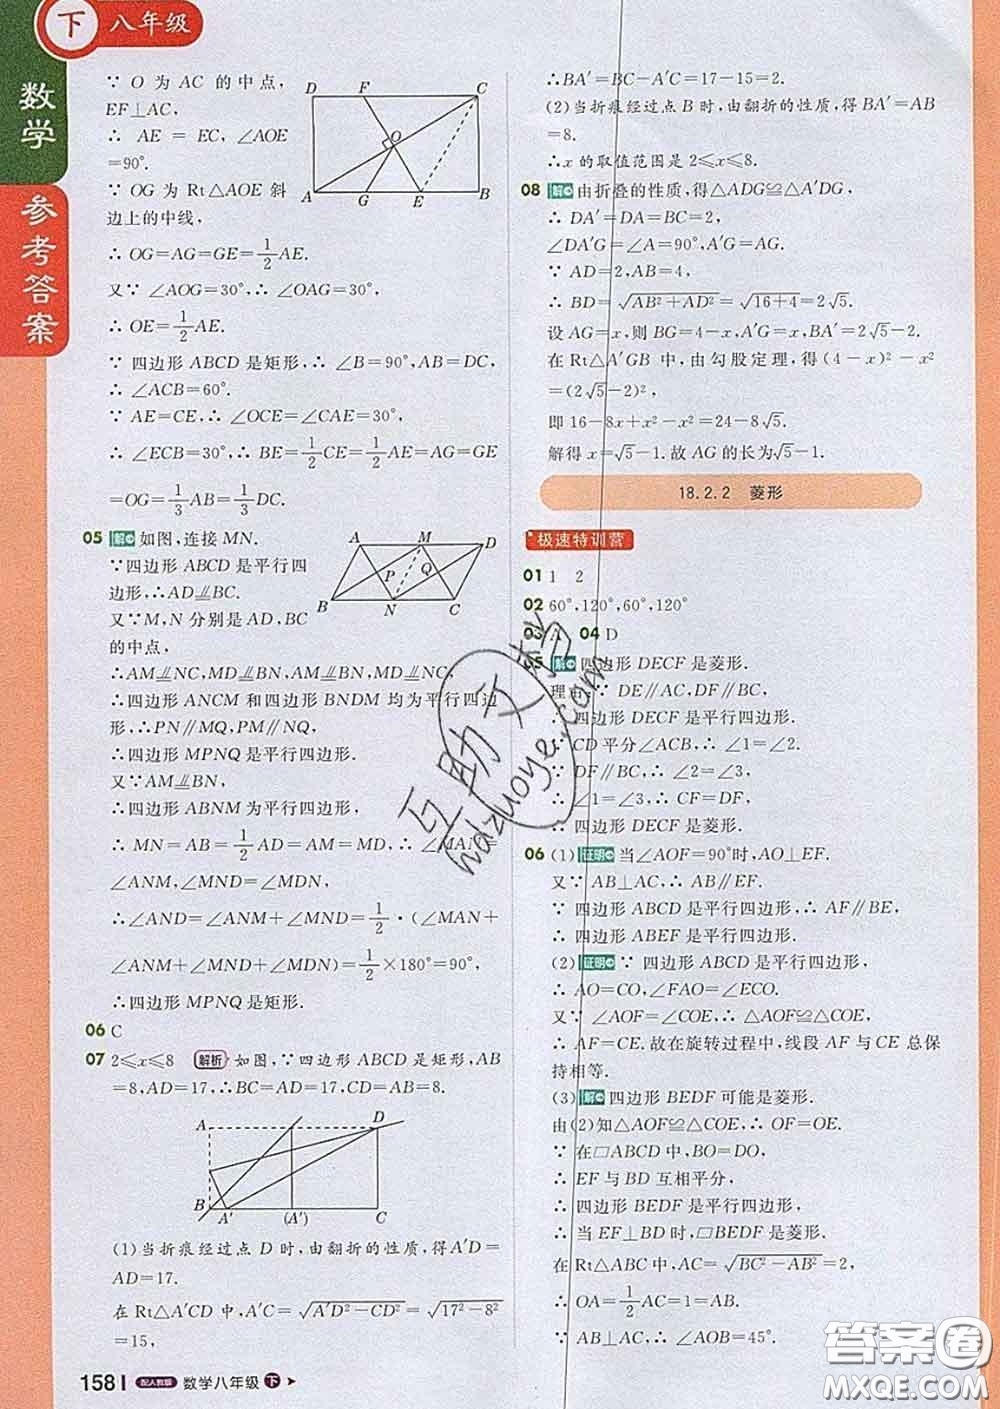 下 八年级
数学
参考答案
∵ O 为 AC 的中点,
EF⊥AC,
∴ AE = EC, ∠AOE
=90°.
∵ OG 为 Rt△AOE 斜
边上的中线,
∴ OG=AG=GE=1/2 AE.
又∵ ∠AOG=30°,∴ ∠OAG=30°.
∴ OE=1/2 AE.
∵ 四边形 ABCD 是矩形,∴ ∠B=90°,AB=DC,
∴ ∠ACB=60°.
∵ AE=CE,∴ ∠OCE=∠CAE=30°,
∴ ∠ECB=30°,∴ BE=1/2 CE=1/2 AE=AG=GE
=OG=1/3 AB=1/3 DC.
D F C
O
A G E B
05 解 如图,连接 MN.
∵四边形 ABCD 是平行四
边形,∴AD∥=BC.
又∵M,N 分别是 AD,BC
的中点,
A M D
P Q
B N C
∴AM∥=NC,MD∥=BN,AM∥=BN,MD∥=NC.
∴四边形 ANCM 和四边形 BNDM 均为平行四边
形,∴PN∥MQ,PM∥NQ.
∴四边形 MPNQ 是平行四边形.
又∵AM∥=BN,
∴四边形 ABNM 为平行四边形,
∴ MN = AB = 1/2 AD = AM = MD, ∴ ∠MAN=
∠ANM,∠MND=∠MDN,
∴∠AND=∠ANM+∠MND=1/2·(∠MAN+
∠ANM+∠MND+∠MDN)=1/2×180°=90°,
∴四边形 MPNQ 是矩形.
06 C
07 2≤x≤8 解析 如图,∵四边形 ABCD 是矩形,AB
=8,AD=17,∴BC=AD=17,CD=AB=8.
A D
B A′ (A′) C
(1)当折痕经过点 D 时,由翻折的性质,得A′D=
AD=17.
在 Rt△A′CD 中,A′C=√(A′D²-CD²)=√(17²-8²)
=15,
158 配人教版 数学八年级 下
∴BA′=BC-A′C=17-15=2.
(2)当折痕经过点 B 时,由翻折的性质,得 BA′=AB
=8.
∴x 的取值范围是 2≤x≤8.
08 解 由折叠的性质,得△ADG≌△A′DG,
∴ DA′=DA=BC=2,
∠DA′G=∠A=90°,A′G=AG.
∵ AD=2,AB=4,
∴ BD=√(AB²+AD²)=√(16+4)=2√5.
设 AG=x,则 BG=4-x,A′G=x,BA′=2√5-2.
在 Rt△A′GB 中,由勾股定理,得(4-x)²-x²
=(2√5-2)²,
即 16-8x+x²-x²=24-8√5.
解得 x=√5-1.故 AG 的长为√5-1.
18.2.2 菱形
极速特训营
01 1 2
02 60°,120°,60°,120°
03 A 04 D
05 解 四边形 DECF 是菱形.
理由:∵ DE∥AC,DF∥BC,
∴ 四边形 DECF 是平行四边形.
∵CD平分∠ACB,∴ ∠1=∠2.
∵ DF∥BC,∴ ∠2=∠3,
∴ ∠1=∠3,∴ CF=DF,
∴ 四边形 DECF 是菱形.
06 (1)证明 当∠AOF=90°时,AO⊥EF.
又∵ AB⊥AC,∴ AB∥EF.
∵ 四边形 ABCD 是平行四边形,∴ AF∥BE,
∴ 四边形 ABEF 是平行四边形.
(2)证明 ∵ 四边形 ABCD 是平行四边形,
∴ AO=CO,∠FAO=∠ECO.
又∵ ∠AOF=∠COE,∴ △AOF≌△COE,
∴ AF=CE.故在旋转过程中,线段 AF 与 CE 总保
持相等.
(3)解 四边形 BEDF 可能是菱形.
由(2)知△AOF≌△COE,∴ OF=OE.
∵ 在▱ABCD 中,BO=DO,
∴ EF 与 BD 互相平分,
∴ 四边形 BEDF 是平行四边形,
∴ 当 EF⊥BD 时,▱BEDF 是菱形.
在 Rt△ABC 中,AC=√(BC²-AB²)=2,
∴ OA=1/2 AC=1=AB.
∵ AB⊥AC,∴ ∠AOB=45°.
互助文档
hdzuoye.com
答案圈
MXQE.COM